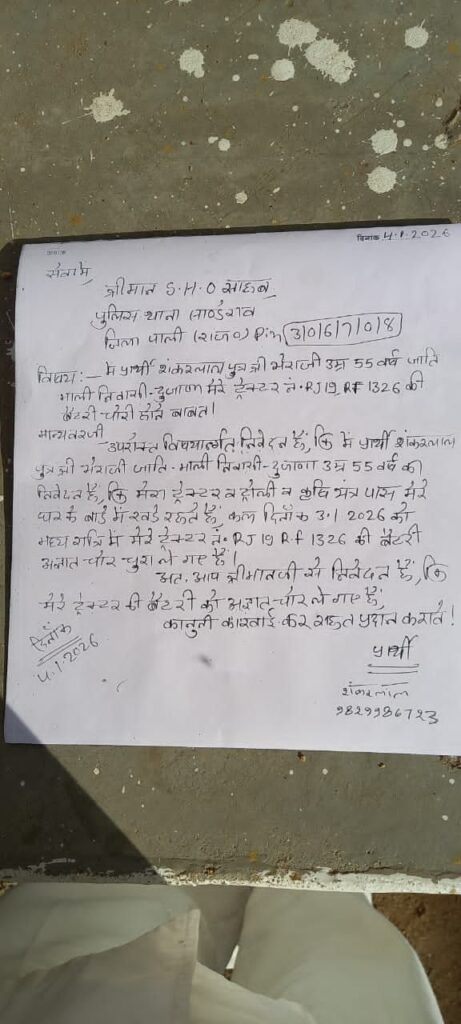 दिनांक 4.1.2026
सेवामें
श्रीमान S.H.O साहब,
पुलिस थाना साण्डेराव
जिला पाली (राज०) Pin 306708
विषय:- मै प्रार्थी शंकरलाल पुत्र श्री भेराजी उम्र 55 वर्ष जाति
माली निवासी-दुजाणा मेरे ट्रेक्टर नं. RJ19 RF 1326 की
बैटरी चोरी होने बाबत।
मान्यवरजी
उपरोक्त विषयार्न्तगत निवेदन हैं, कि मै प्रार्थी शंकरलाल
पुत्र श्री भेराजी जाति-माली निवासी-दुजाणा उम्र 55 वर्ष का
निवेदन हैं, कि मेरा ट्रेक्टर व ट्रोली व कृषि यंत्र पास मेरे
घर के बाडे में खडे रहते हैं, कल दिनाँक 3.1 2026 को
मध्य रात्रि में मेरे ट्रेक्टर नं. RJ 19 RF 1326 की बैटरी
अज्ञात चोर चुरा ले गए हैं।
अतः आप श्रीमानजी से निवेदन हैं, कि
मेरे ट्रेक्टर की बैटरी को अज्ञात चोर ले गए हैं,
कानुनी कारवाई कर राहत प्रदान करावें!
दिनाँक
4.1.2026
प्रार्थी
शंकरलाल
9829986723